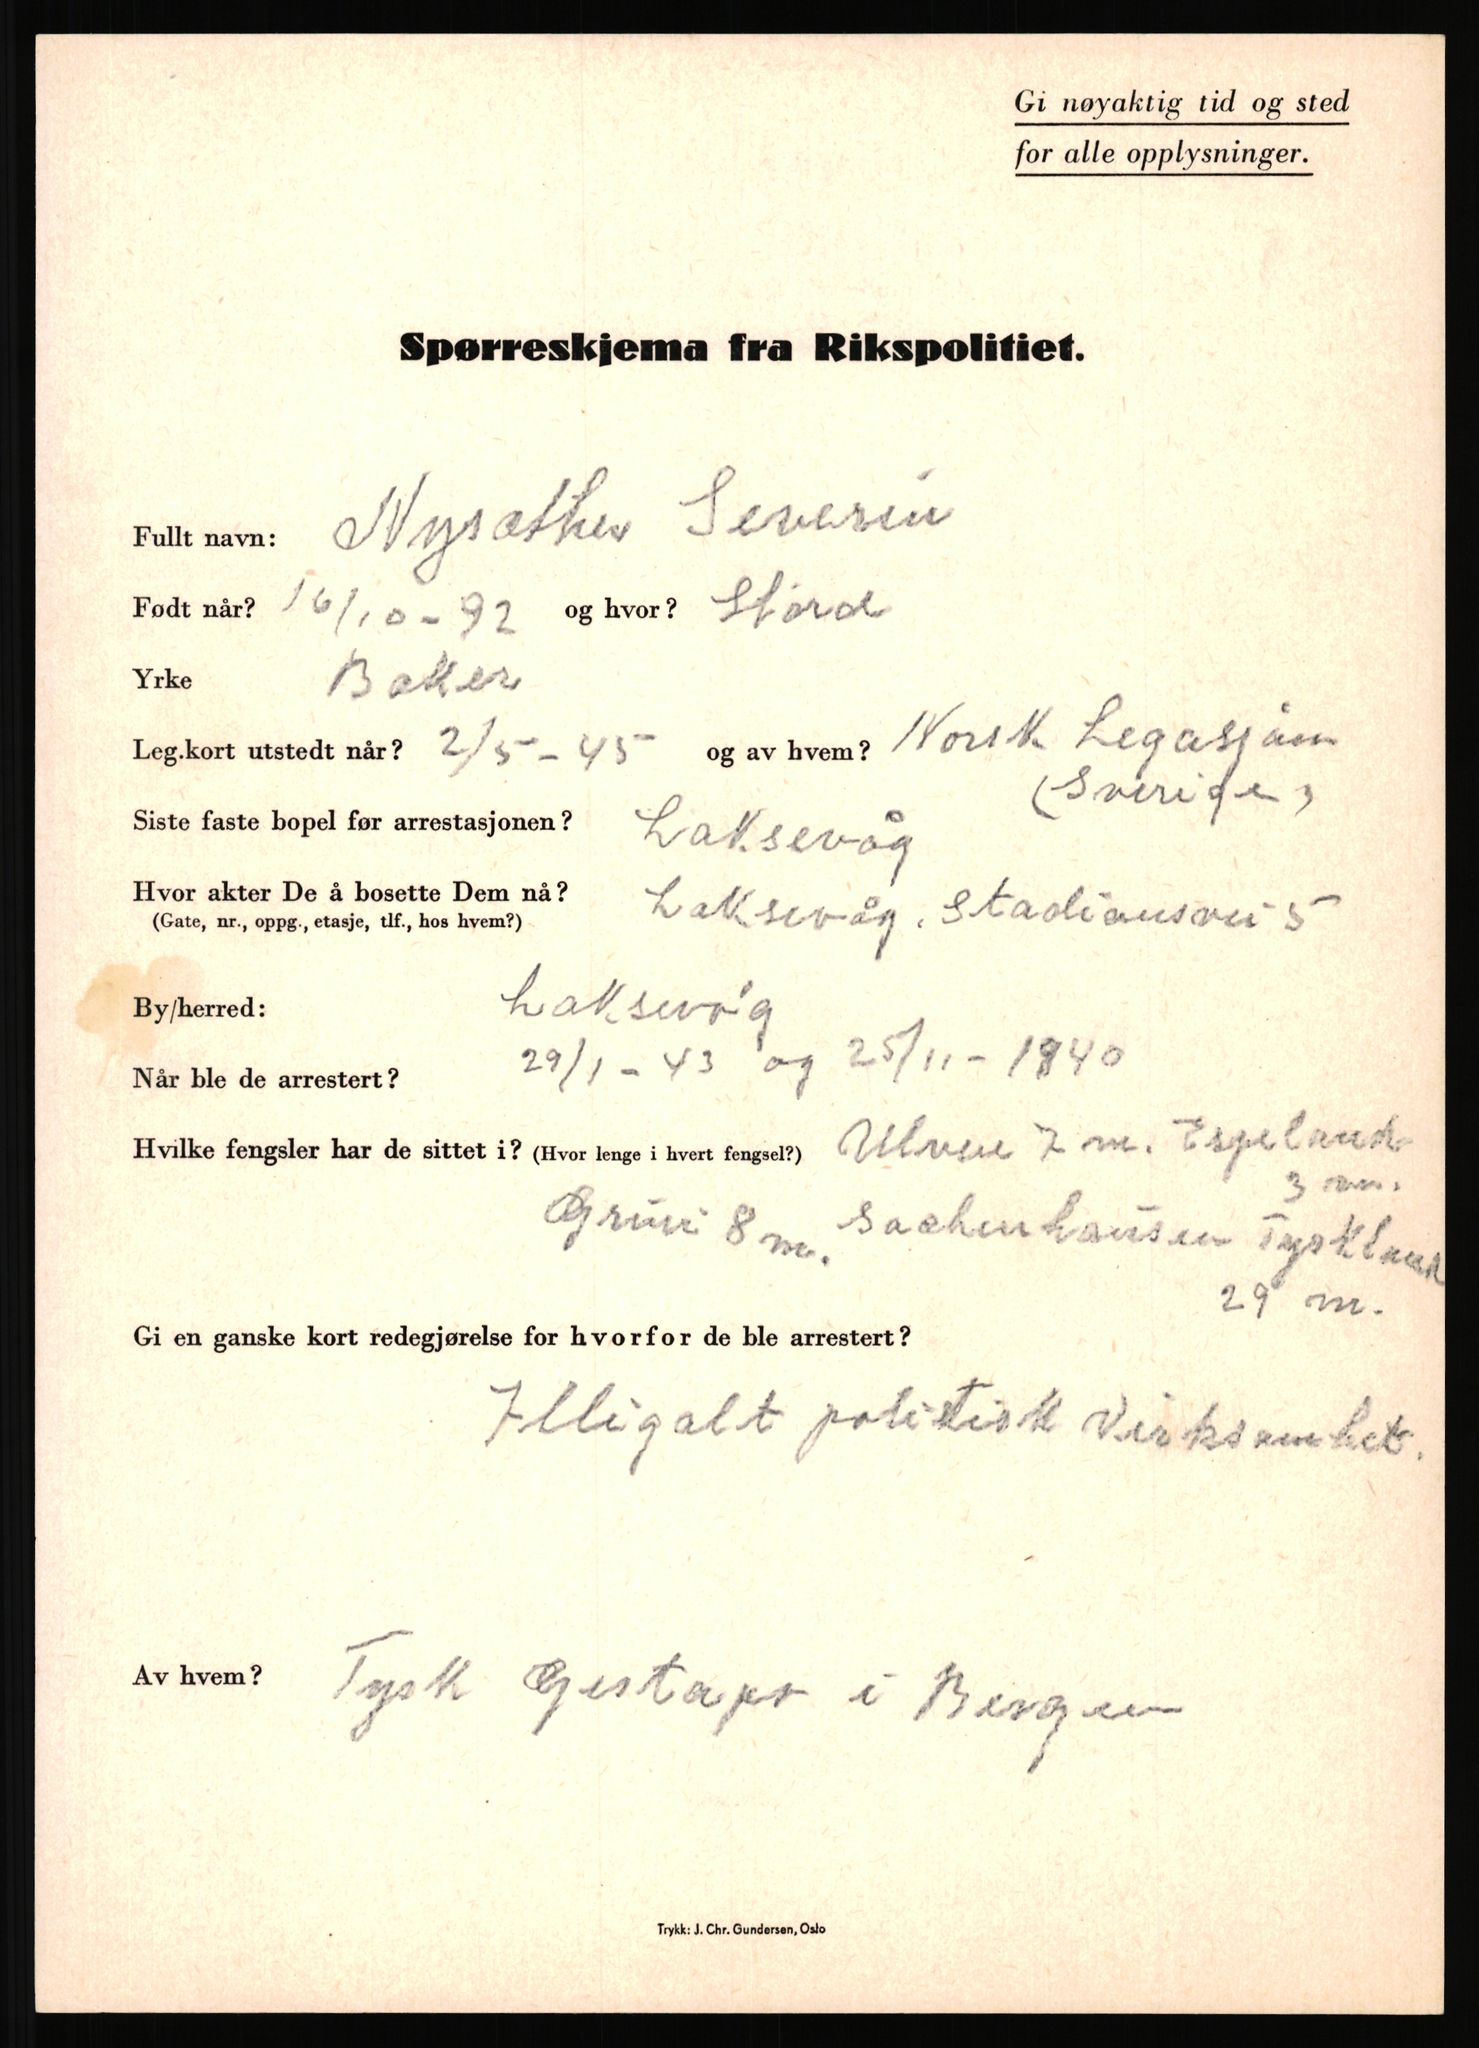 Gi nøyaktig tid og sted
for alle opplysninger.
Spørreskjema fra Rikspolitiet.
Fullt navn: Nysæther Severin
Født når? 16/10-92 og hvor? Stord
Yrke Baker
Leg.kort utstedt når? 2/5-45 og av hvem? Norsk Legasjon
(Sverige)
Siste faste bopel før arrestasjonen? Laksevåg
Hvor akter De å bosette Dem nå? Laksevåg. Stadionsvei 5
(Gate, nr., oppg., etasje, tlf., hos hvem?)
By/herred: Laksevåg
Når ble de arrestert? 29/1-43 og 25/11-1940
Hvilke fengsler har de sittet i? (Hvor lenge i hvert fengsel?) Ulven 7 m. Espeland
3 m.
Grini 8 m. Sachenhausen Tyskland
29 m.
Gi en ganske kort redegjørelse for hvorfor de ble arrestert?
Illigalt politisk virksomhet.
Av hvem? Tysk Gestapo i Bergen
Trykk: J. Chr. Gundersen, Oslo